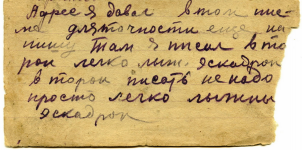 Адрес я давал в том пис-
ма для точности еще на
пишу Там я писал в то
рой легко лиж. эскадрон
второй писать не надо
просто легко лыжный
эскадрон